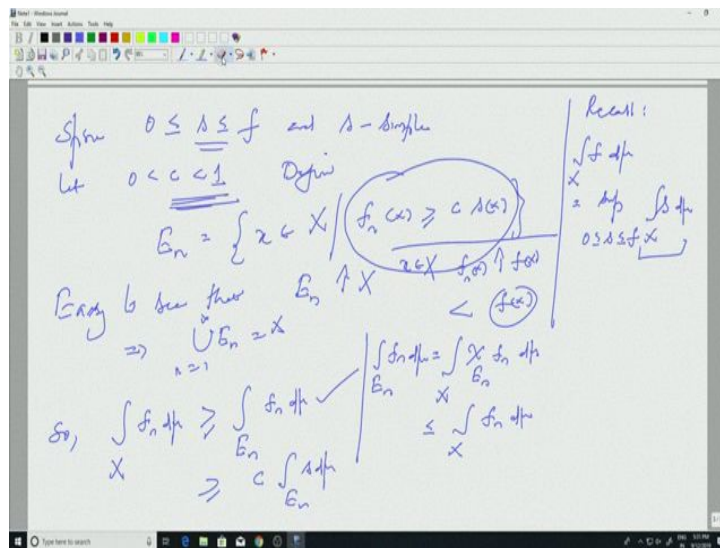 Note1 - Windows Journal
File Edit View Insert Actions Tools Help
Spse 0 ≤ s ≤ f and s - simple
Let 0 < c < 1 Define
E_n = { x ∈ X | f_n(x) ≥ c s(x) }
x ∈ X f_n(x) ↑ f(x)
< f(x)
Easy to see that E_n ↑ X
⇒ ∪_{n=1}^∞ E_n = X
So, ∫_X f_n dμ ≥ ∫_{E_n} f_n dμ ✓
≥ c ∫_{E_n} s dμ
∫_{E_n} f_n dμ = ∫_X χ_{E_n} f_n dμ
≤ ∫_X f_n dμ
Recall:
∫_X f dμ
= sup_{0≤s≤f} ∫_X s dμ
Type here to search
ENG 5:31 PM